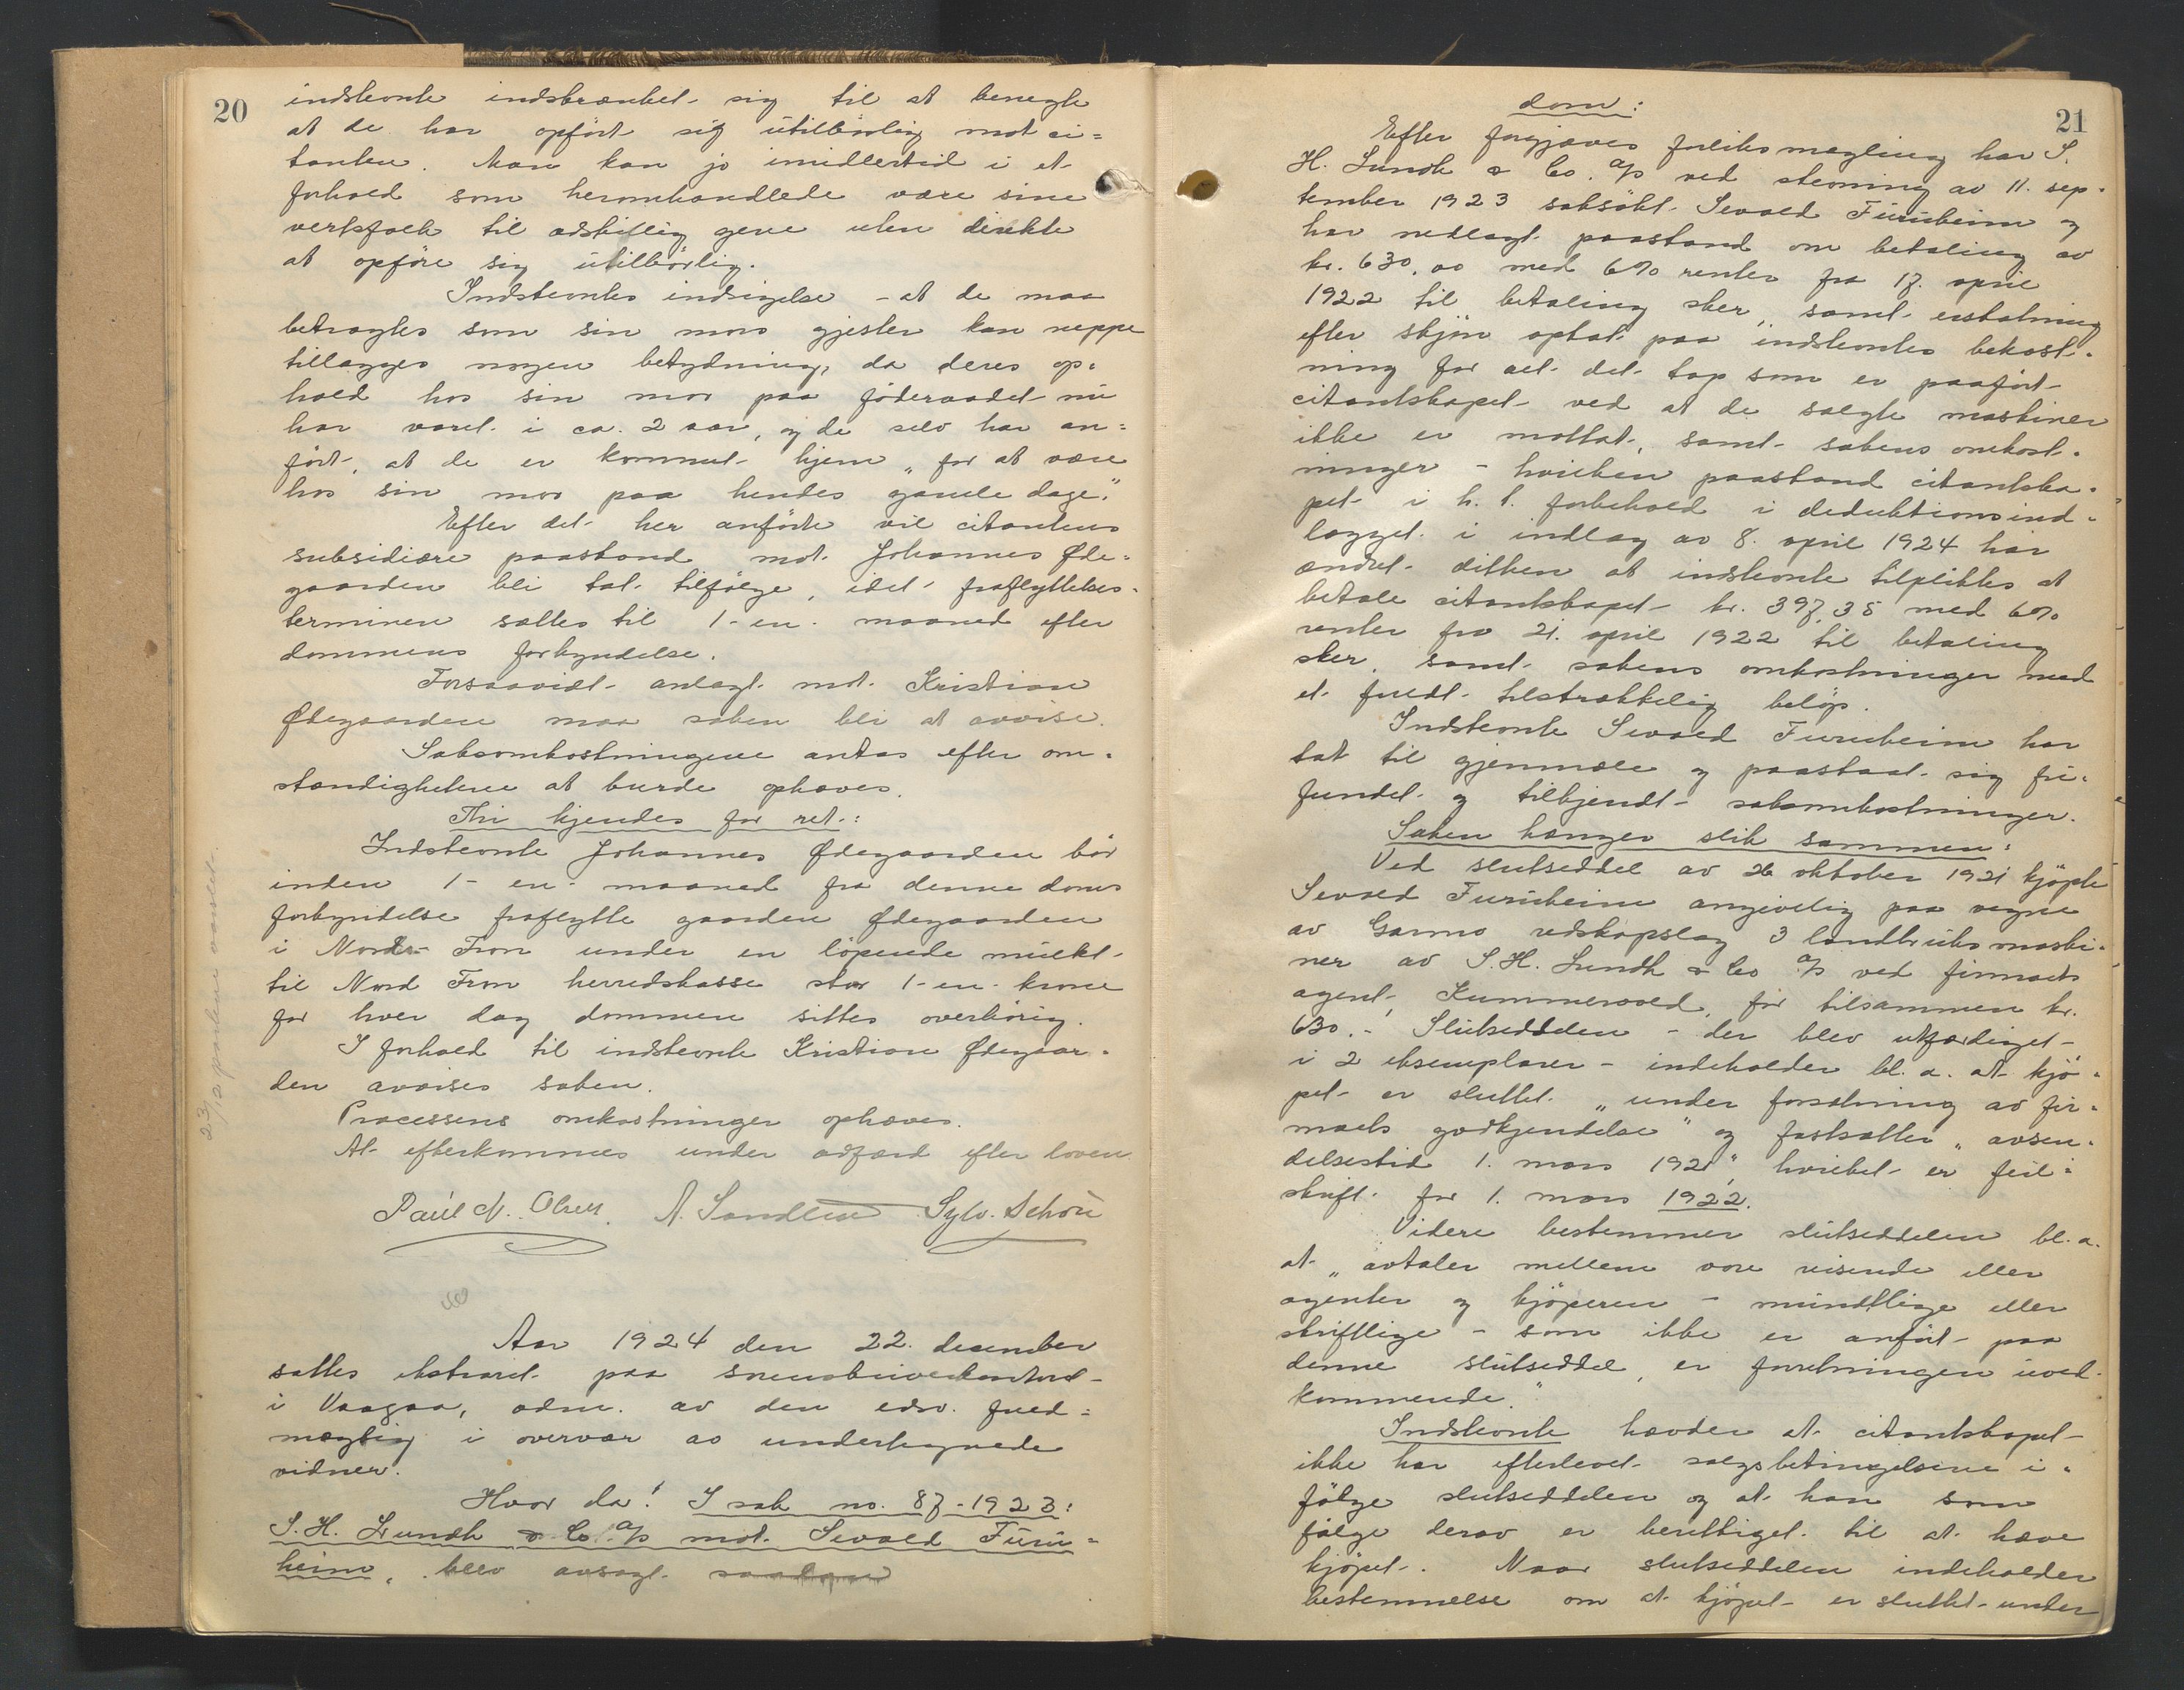 20
indstevnte indskrænket sig til at benegte
at de har opført sig utilbörlig mot ci=
tanten. Man kan jo imidlertid i et
forhold som heromhandlede være sine
vertsfolk til adskillig gene uten direkte
at opføre sig utilbörlig.
Indstevntes indsigelse - at de maa
betragtes som sin mors gjester kan neppe
tillægges nogen betydning, da deres op=
hold hos sin mor paa föderaadet nu
har varet i ca. 2 aar, og de selv har an=
ført, at de er kommet hjem „for at være
hos sin mor paa hendes gamle dage."
Efter det her anførte vil citantens
subsidiære paastand mot Johannes Øde=
gaarden bli tat tilfølge, idet fraflyttelses=
terminen sættes til 1-en- maaned efter
dommens forkyndelse.
Forsaavidt anlagt mot Kristian
Ødegaarden maa saken bli at avvise.
Saksomkostningene antas efter om=
stændighetene at burde ophæves.
Thi kjendes for ret:
Indstevnte Johannes Ødegaarden bör
inden 1-en- maaned fra denne doms
forkyndelse fraflytte gaarden Ødegaarden
i Nordre Fron under en löpende mulkt
til Nord Fron herredskasse stor 1-en- krone
for hver dag dommen sittes overhörig.
I forhold til indstevnte Kristian Ødegaar=
den avvises saken.
Processens omkostninger ophæves.
At efterkommes under adfærd efter loven.
Paul N. Olsen. A. Sandlien Sylv. Schou
23/12 partene varslet
Aar 1924 den 22. december
sattes ekstraret paa sorenskriverkontoret
i Vaagaa, adm. av den edsv. fuld=
mægtig i overvær av undertegnede
vidner.
Hvor da! I sak no. 87-1923:
S. H. Lundh & Co. A/S mot Sevald Furu=
heim, blev avsagt saadan
21
dom:
Efter forgjæves forliksmægling har S.
H. Lundh & Co. A/S ved stevning av 11. sep=
tember 1923 saksökt Sevald Furuheim og
har nedlagt paastand om betaling av
kr. 630,00 med 6% renter fra 17. april
1922 til betaling sker, samt erstatning
efter skjön optat paa indstevntes bekost=
ning for alt det tap som er paafört
citantskapet ved at de solgte maskiner
ikke er mottat, samt sakens omkost=
ninger - hvilken paastand citantska=
pet i h. t. forbehold i deduktionsind=
lægget i indlæg av 8. april 1924 har
ændret dithen at indstevnte tilpliktes at
betale citantskapet kr. 397,35 med 6%
renter fra 21. april 1922 til betaling
sker, samt sakens omkostninger med
et fuldt tilstrækkelig belöp.
Indstevnte Sevald Furuheim har
tat til gjenmæle og paastaat sig fri=
fundet og tilkjendt saksomkostninger.
Saken hænger slik sammen:
Ved slutseddel av 26 oktober 1921 kjöpte
Sevald Furuheim angivelig paa vegne
av Garmo redskapslag 3 landbruksmaski=
ner av S. H. Lundh & Co A/S ved firmaets
agent, Kummervold, for tilsammen kr.
630.- Slutseddelen - der blev utfærdiget
i 2 eksemplarer - indeholder bl. a. at kjö=
pet er sluttet „under forsætning av fir=
maets godkjendelse" og fastsætter „avsen=
delsestid 1. mars 1921" hvilket er feil=
skrift for 1. mars 1922.
Videre bestemmer slutseddelen bl. a.
at „avtaler mellem vore reisende eller
agenter og kjöperen - mundtlige eller
skriftlige - som ikke er anfört paa
denne slutseddel, er forretningen uved=
kommende."
Indstevnte hævder at citantskapet
ikke har efterlevet salgsbetingelsene i=
fölge slutseddelen og at han som
følge derav er berettiget til at hæve
kjöpet. Naar slutseddelen indeholder
bestemmelse om at kjöpet er sluttet under